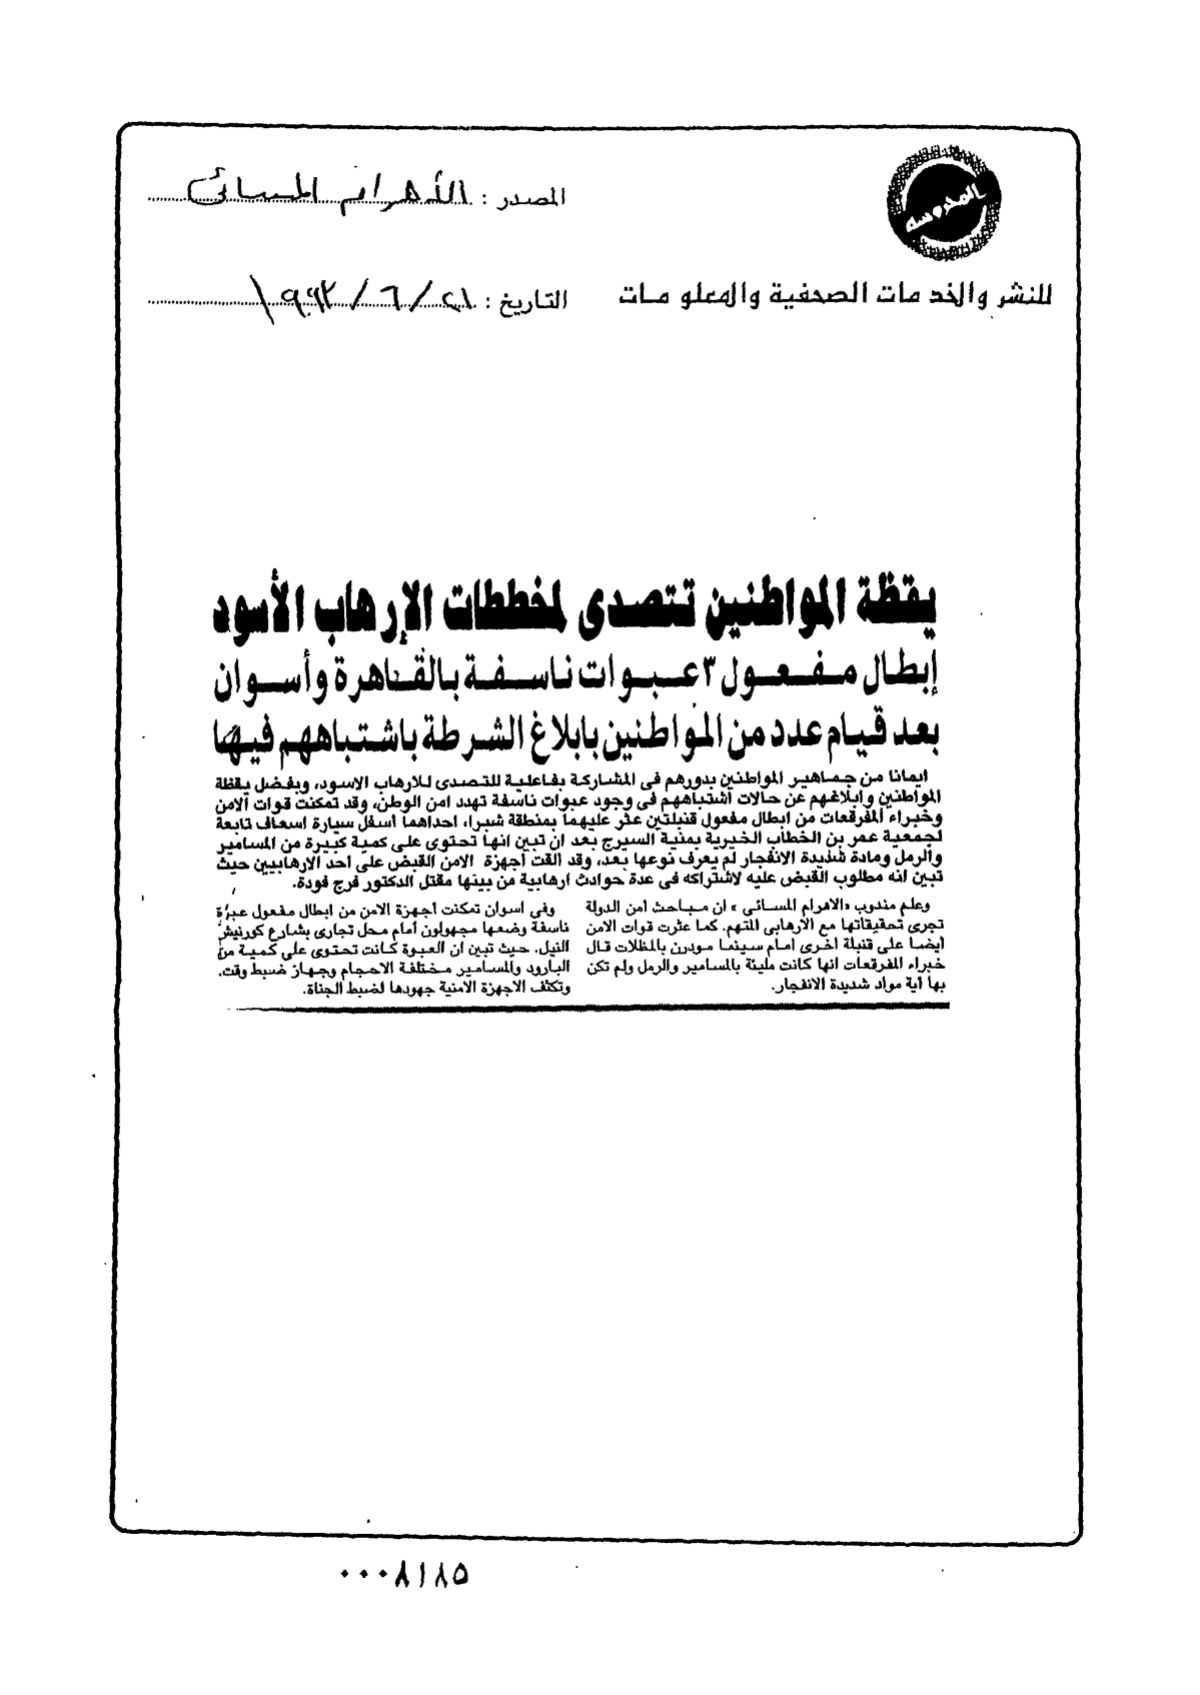 المحروسة
المصدر : الأهرام المسائى
للنشر والخدمات الصحفية والمعلومات
التاريخ : ٢١ / ٦ / ١٩٩٣
يقظة المواطنين تتصدى لمخططات الإرهاب الأسود
إبطال مفعول ٣ عبوات ناسفة بالقاهرة وأسوان
بعد قيام عدد من المواطنين بابلاغ الشرطة باشتباههم فيها
ايمانا من جماهير المواطنين بدورهم فى المشاركة بفاعلية للتصدى للارهاب الاسود، وبفضل يقظة
المواطنين وابلاغهم عن حالات اشتباههم فى وجود عبوات ناسفة تهدد امن الوطن، وقد تمكنت قوات الامن
وخبراء المفرقعات من ابطال مفعول قنبلتين عثر عليهما بمنطقة شبرا، احداهما اسفل سيارة اسعاف تابعة
لجمعية عمر بن الخطاب الخيرية بمنية السيرج بعد ان تبين انها تحتوى على كمية كبيرة من المسامير
والرمل ومادة شديدة الانفجار لم يعرف نوعها بعد، وقد القت أجهزة الامن القبض على احد الارهابيين حيث
تبين انه مطلوب القبض عليه لاشتراكه فى عدة حوادث ارهابية من بينها مقتل الدكتور فرج فودة.
وعلم مندوب «الاهرام المسائى» ان مباحث أمن الدولة
تجرى تحقيقاتها مع الارهابى المتهم. كما عثرت قوات الامن
ايضا على قنبلة اخرى امام سينما مودرن بالمظلات قال
خبراء المفرقعات انها كانت مليئة بالمسامير والرمل ولم تكن
بها أية مواد شديدة الانفجار.
وفى اسوان تمكنت أجهزة الامن من ابطال مفعول عبوة
ناسفة وضعها مجهولون أمام محل تجارى بشارع كورنيش
النيل. حيث تبين ان العبوة كانت تحتوى على كمية من
البارود والمسامير مختلفة الاحجام وجهاز ضبط وقت.
وتكثف الاجهزة الامنية جهودها لضبط الجناة.
٠٠٠٨١٨٥